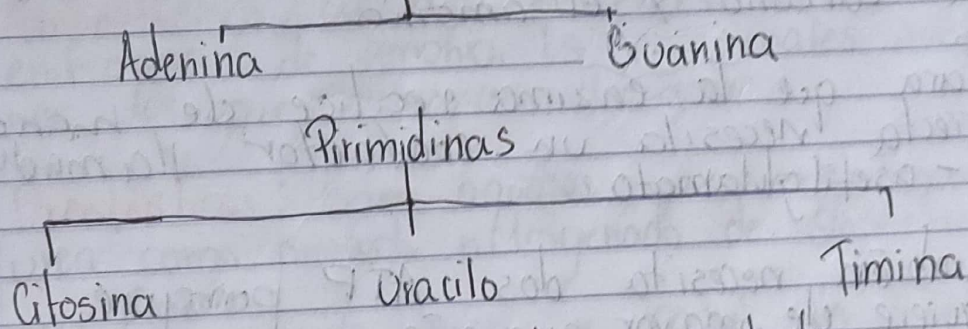 Adenina Guánina
Pirimidinas
Citosina Uracilo Timina